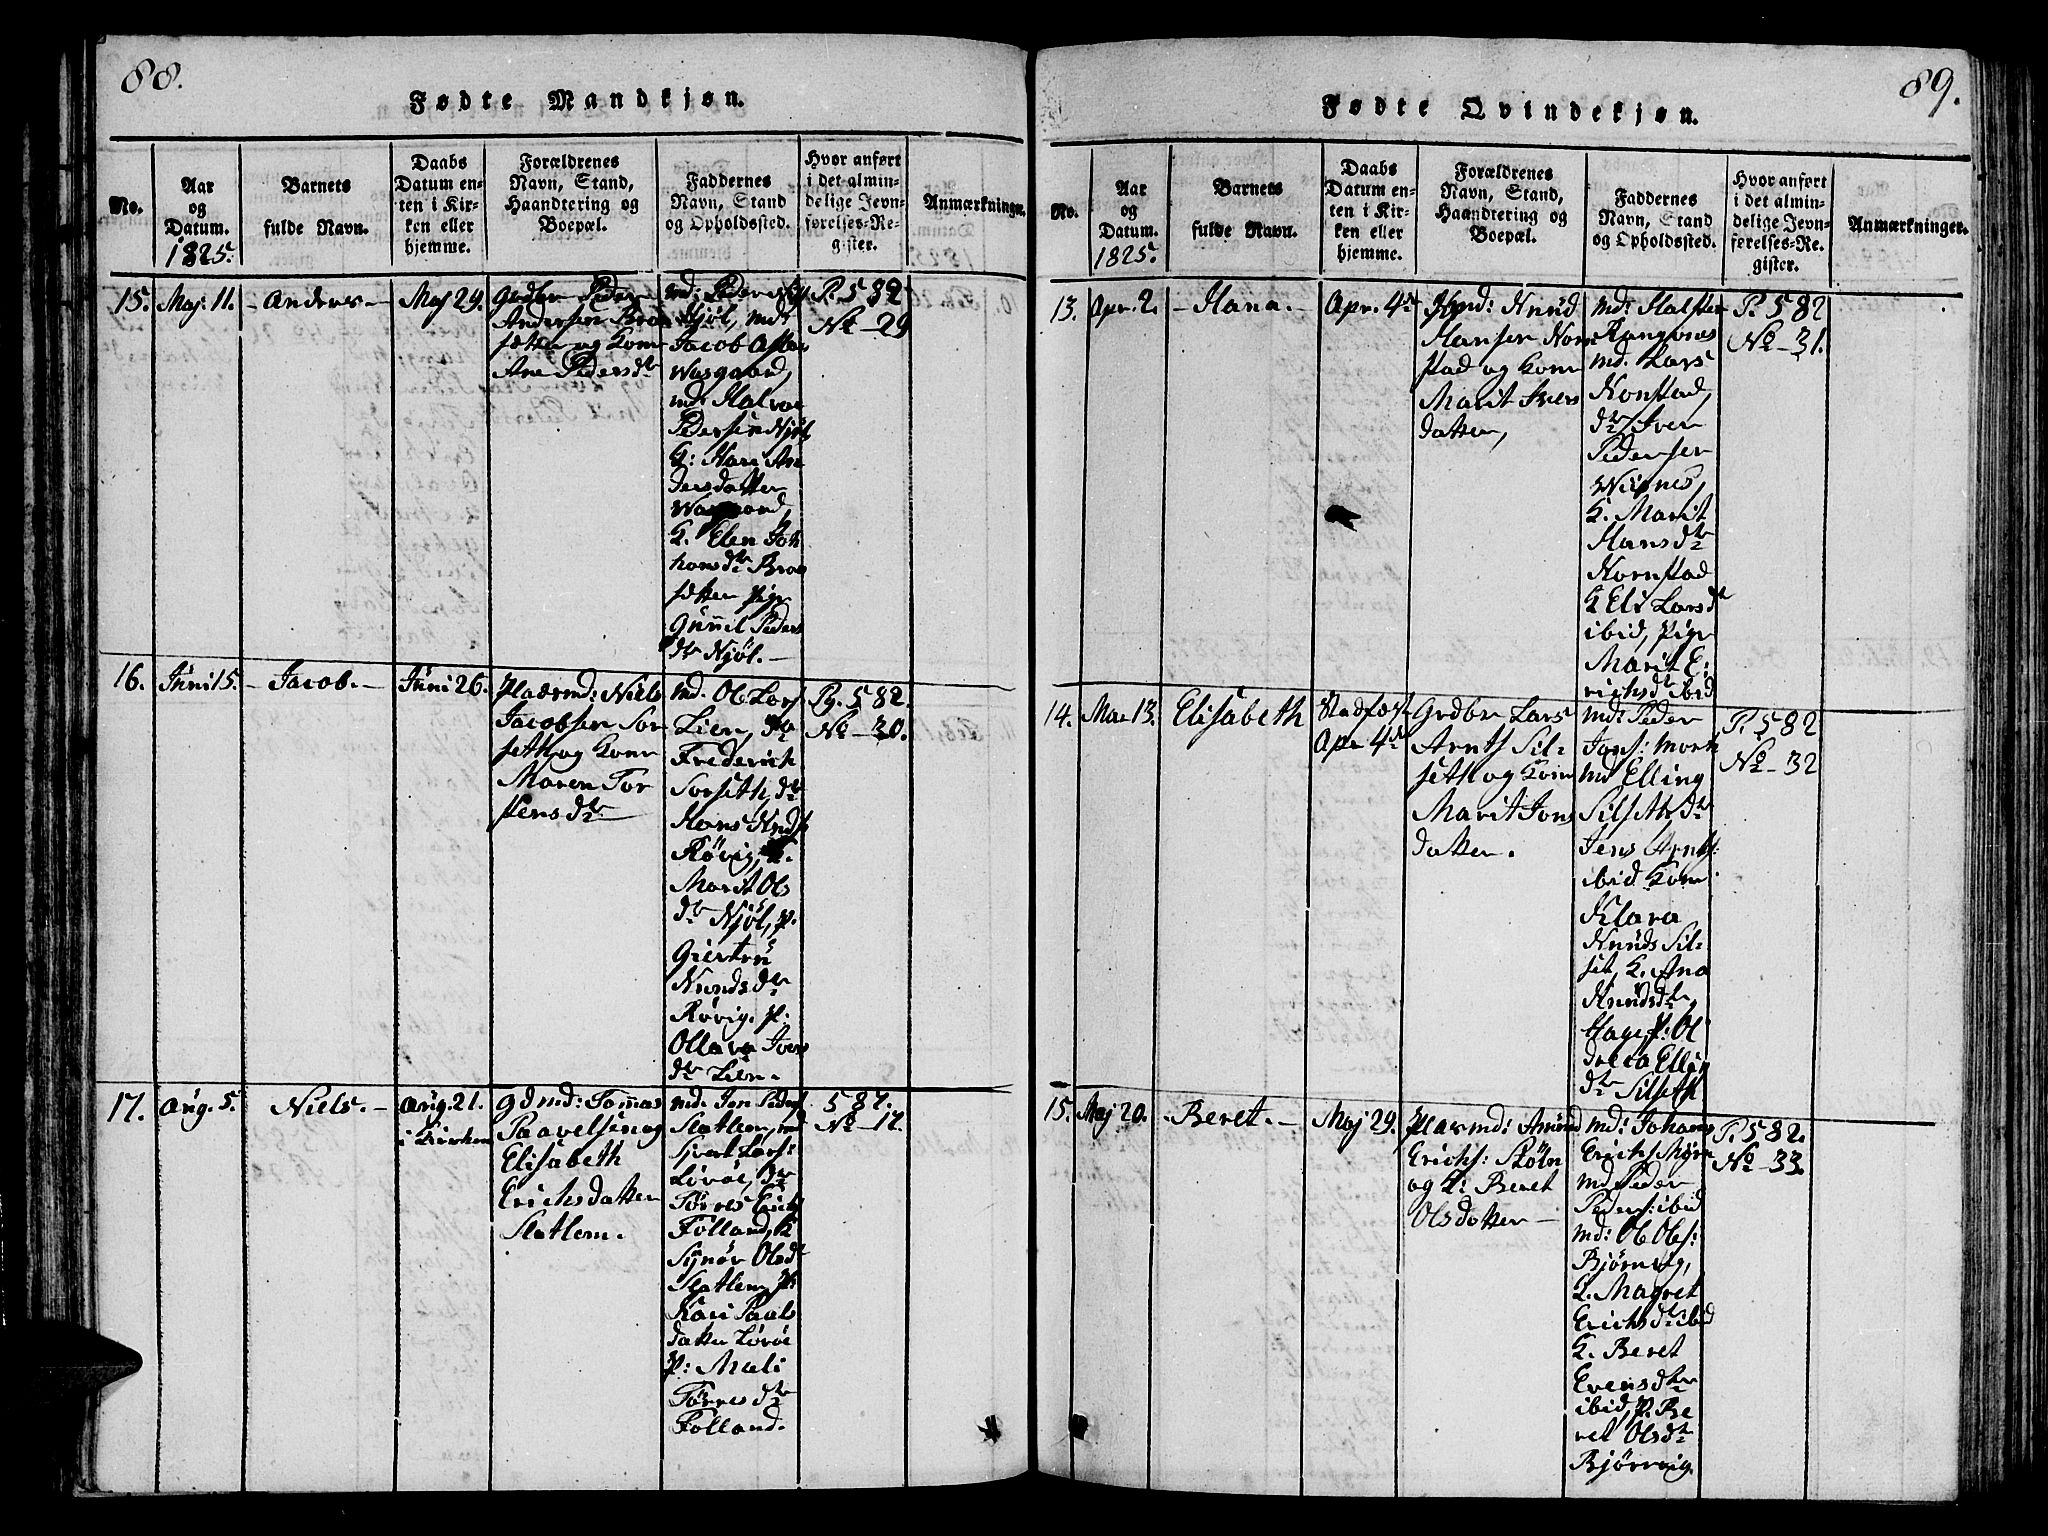 88.
Fødte Mandkjøn.
No.
Aar
og
Datum.
1825.
Barnets
fulde Navn.
Daabs
Datum en-
ten i Kir-
ken eller
hjemme.
Forældrenes
Navn, Stand,
Haandtering og
Boepæl.
Faddernes
Navn, Stand
og Opholdssted.
Hvor anført
i det almin-
delige Jevn-
førelses-Re-
gister.
Anmærkninger.
15.
Maj: 11.
Anders
Maj 29.
Peder
Andersen
og Kone
Ane Pedersdtr
md: Peder
Njøl, md:
Jacob
Wasgaard,
md: Halvor
Pedersen Njøl
K: Mari An
dersdatter
Wasgaard,
K. Elen Joh
hansdtr Broe
sætter Pige
Guniil Peders
dtr Njøl.
P. 582
No 29
16.
Juni 15.
Jacob.
Juni 26.
Pladsmd: Niels
Jacobsen Sor
seth og Kone
Maren Tor
stensdtr
md. Ole Lars
Lien, dto
Frederich
Sorseth, dto
Hans Knuds
Røvig, K.
Marit Ols
dtr Njøl, P.
Giertru
Knudsdtr
Røvig. P:
Ollava Ivers
dtr Lien.
Pg. 582.
No 30.
17.
Aug. 5.
Niels.
Aug. 21.
i Kirken
gdmd: Tomas
Paavelsen og
Elisabeth
Erichsdatter
Slatlem.
md. Jon Peders
Slatlem, md
Sjvert Lars:
Lovöe, dto
Törres Erichs
Folland, K
Synöv Olsdtr
Slatlem, P:
Kari Paals
datter Lovöe
P: Mali
Törresdtr
Folland.
582.
No 17.
89.
Fødte Qvindekjøn.
No.
Aar
og
Datum.
1825.
Barnets
fulde Navn.
Daabs
Datum en-
ten i Kir-
ken eller
hjemme.
Forældrenes
Navn, Stand,
Haandtering og
Boepæl.
Faddernes
Navn, Stand
og Opholdssted.
Hvor anført
i det almin-
delige Jevn-
førelses-Re-
gister.
Anmærkninger.
13.
Apr. 2.
Hana.
Apr. 4de
md: Knud
Hansen Norn
stad og Kone
Marit Ivers
datter,
md: Halsten
md. Lars
Nornstad,
dto Iver
Pedersen
K. Marit
Hansdtr
Nornstad
K Eli Larsdtr
ibid, Pige
Marit E:
richsdtr ibid
P. 582
No 31.
14.
Mar 13.
Elisabeth
Stadfæst
Apr 4de
Grdbr Lars
Arnts Sil-
seth og Kone
Marit Jons
datter.
md: Peder
Jons:
md Elling
Silseth dto
Jens Arnts:
ibid Kone
Klara
Knuds Sil-
set, K. Ana
Knudsdtr
Hage, P: Ol
Elling
dtr Silseth
P. 582
No 32
15.
Maj 20.
Beret.
Maj 29.
Pladsmd: Amund
Erichs: Stöln
og K: Beret
Olsdatter
md: Johans
Erichs Myre
md Peder
Peders: ibid
md: Ole Ols:
Bjørnvig,
K. Magret
Erichsdtr ibid
K. Beret
Evensdtr
ibid, P. Be
ret Olsdtr
Bjørnvig
P. 582.
No 33.